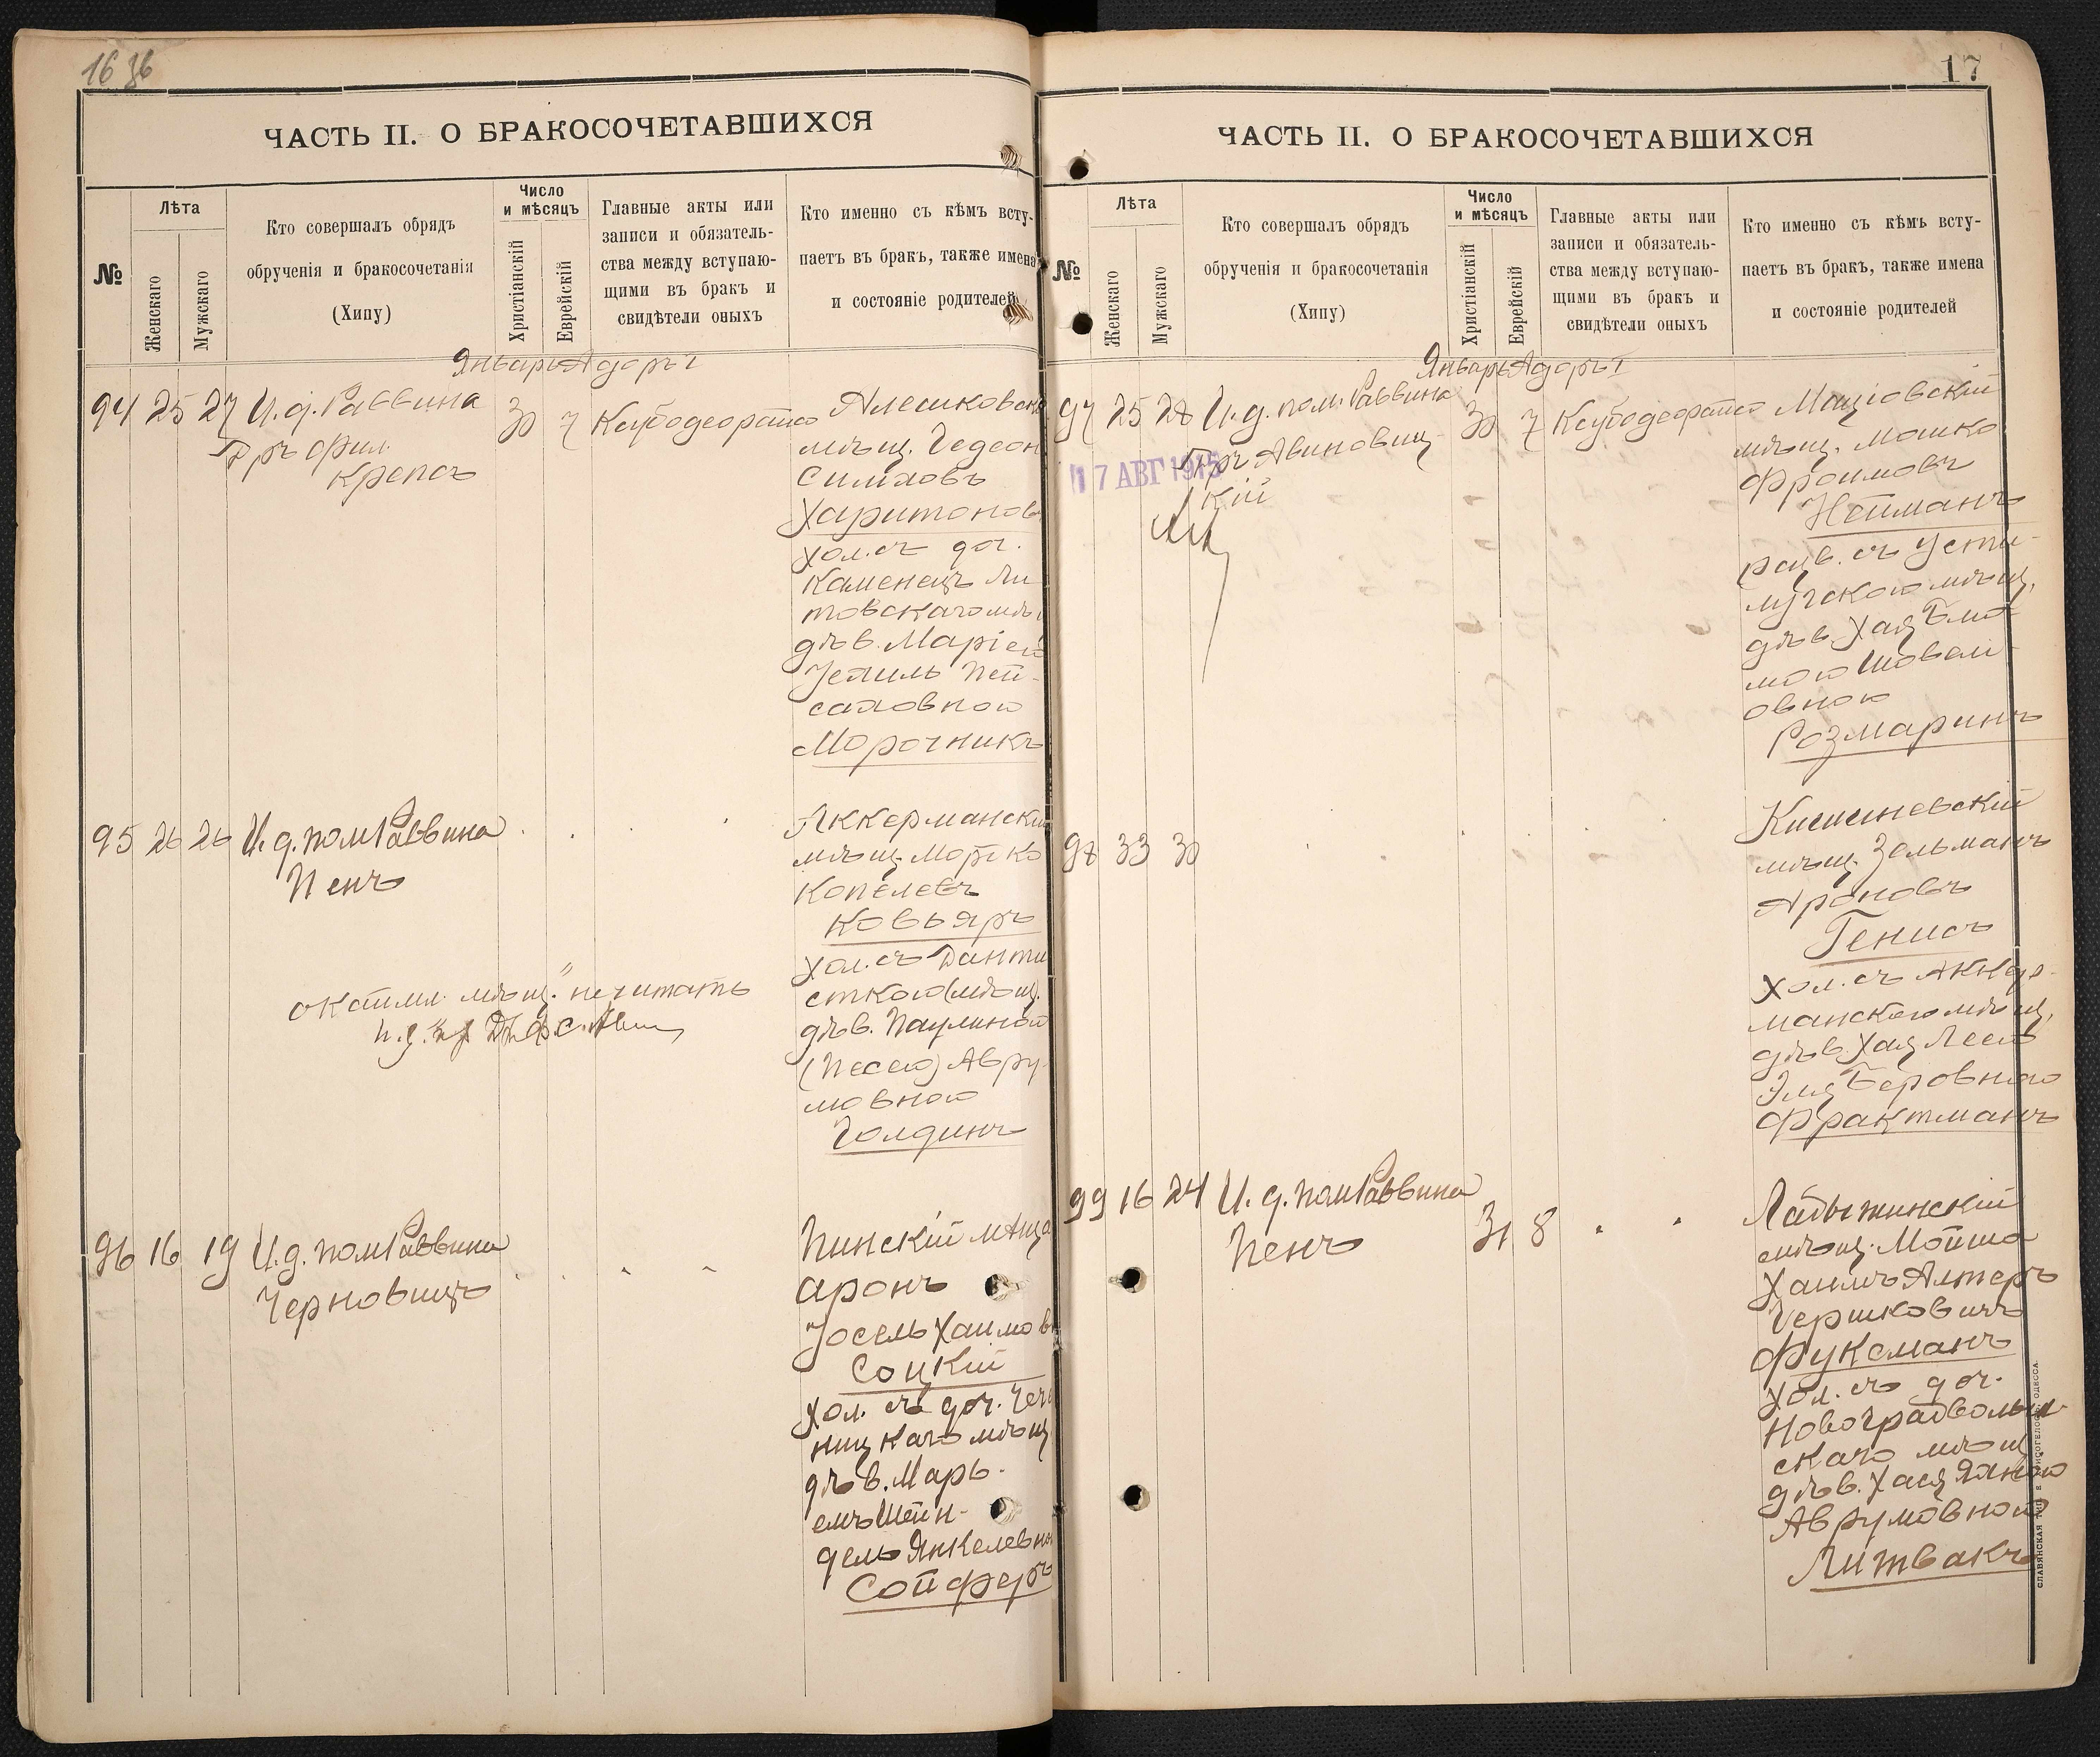 16 об
ЧАСТЬ II. О БРАКОСОЧЕТАВШИХСЯ
№
Лѣта
Женскаго
Мужскаго
Кто совершалъ обрядъ
обрученія и бракосочетанія
(Хипу)
Число
и мѣсяцъ
Христіанскій
Еврейскій
Главные акты или
записи и обязатель-
ства между вступаю-
щими въ бракъ и
свидѣтели оныхъ
Кто именно съ кѣмъ всту-
паетъ въ бракъ, также имена
и состояніе родителей
Январь Адоръ I
94 25 27 И. д. Раввина
Крепсъ
30 7
Алешковск
мѣщ. Гедеон
Симховъ
Харитонов
хол. съ доч.
Каменецъ Ли
товскаго мѣщ
дѣв. Маріей
Пей-
саховною
Морочникъ
95 26 26 И. д. пом Раввина
Пенъ
Аккерманскій
мѣщ. Мошко
Копелевъ
Ковьяръ
хол. съ Данти
сткою (мѣщ.
дѣв. Паулиной
(Песею) Авру-
мовною
Голдинъ
мѣщ." нечитать
96 16 19 И. д. пом Раввина
Черновицъ
Пинскій мѣща
Аронъ
Іосель Хаимов
Соцкій
хол. съ доч.
ницкаго мѣщ
дѣв. Марь-
емъ Шейн-
дель Янкелевно
Сойферъ
17
ЧАСТЬ II. О БРАКОСОЧЕТАВШИХСЯ
№
Лѣта
Женскаго
Мужскаго
Кто совершалъ обрядъ
обрученія и бракосочетанія
(Хипу)
Число
и мѣсяцъ
Христіанскій
Еврейскій
Главные акты или
записи и обязатель-
ства между вступаю-
щими въ бракъ и
свидѣтели оныхъ
Кто именно съ кѣмъ всту-
паетъ въ бракъ, также имена
и состояніе родителей
Январь Адоръ I
97 25 28 И. д. пом. Раввина
Авиновиц-
кій
17 АВГ 1915
30 7
Маціовскій
мѣщ. Мошко
Фроимовъ
Нейманъ
разв. съ Усти-
лугскою мѣщ.
дѣв. Хая
овною
Розмаринъ
98 33 30
Кишиневскій
мѣщ. Зельманъ
Ароновъ
Генисъ
хол. съ Аккер-
манскою мѣщ.
дѣв. Хая Леею
Беровною
Фрактманъ
99 16 24 И. д. пом Раввина
Пенъ
31 8
Ладыжинскій
мѣщ. Мойша
Хаимъ Алтеръ
Гершковичъ
Фуксманъ
хол. съ доч.
Новоградволын-
скаго мѣщ
дѣв.
Аврумовной
Литвакъ